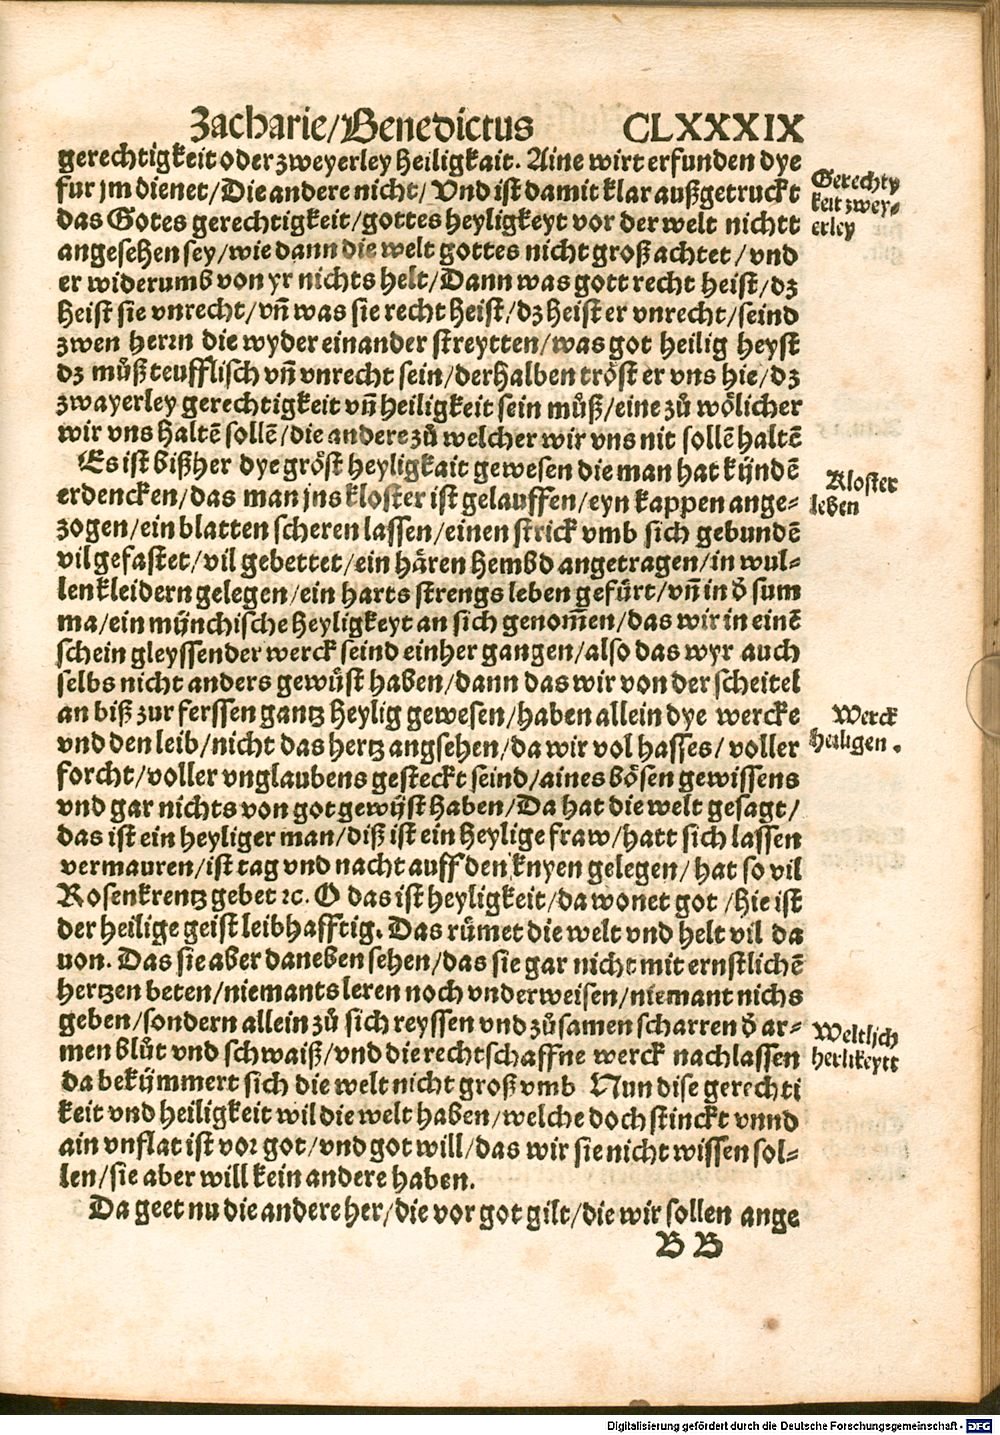 Zacharie/Benedictus CLXXXIX
gerechtigkeit oder zweyerley heiligkait. Aine wirt erfunden dye
fur jm dienet/Die andere nicht/ Vnd ist damit klar außgetruckt
das Gotes gerechtigkeit/gottes heyligkeyt vor der welt nichtt
angesehen sey/wie dann die welt gottes nicht groß achtet/vnd
er widerumb von yr nichts helt/Dann was gott recht heist/dz
heist sie vnrecht/vñ was sie recht heist/dz heist er vnrecht/seind
zwen herrn die wyder einander streytten/was got heilig heyst
dz můß teufflisch vñ vnrecht sein/derhalben tröst er vns hie/dz
zwayerley gerechtigkeit vñ heiligkeit sein můß/eine zů wölicher
wir vns haltē sollē/die andere zů welcher wir vns nit sollē haltē
Es ist bißher dye gröst heyligkait gewesen die man hat kündē
erdencken/das man jns kloster ist gelauffen/eyn kappen ange-
zogen/ein blatten scheren lassen/einen strick vmb sich gebundē
vil gefastet/vil gebettet/ein hären hembd angetragen/in wul-
len kleidern gelegen/ein harts strengs leben gefürt/vñ in ð sum
ma/ein münchische heyligkeyt an sich genom̄en/das wir in einē
schein gleyssender werck seind einher gangen/also das wyr auch
selbs nicht anders gewüst haben/dann das wir von der scheitel
an biß zur ferssen gantz heylig gewesen/haben allein dye wercke
vnd den leib/nicht das hertz angsehen/da wir vol hasses/voller
forcht/voller vnglaubens gesteckt seind/aines bösen gewissens
vnd gar nichts von got gewüst haben/Da hat die welt gesagt/
das ist ein heyliger man/diß ist ein heylige fraw/hatt sich lassen
vermauren/ist tag vnd nacht auff den knyen gelegen/hat so vil
Rosenkrentz gebet ꝛc. O das ist heyligkeit/da wonet got/hie ist
der heilige geist leibhafftig. Das rümet die welt vnd helt vil da
uon. Das sie aber daneben sehen/das sie gar nicht mit ernstlichē
hertzen beten/niemants leren noch vnderweisen/niemant nichs
geben/sondern allein zů sich reyssen vnd zůsamen scharren ð ar-
men blůt vnd schwaiß/vnd die rechtschaffne werck nachlassen
da bekümmert sich die welt nicht groß vmb Nun dise gerechti
keit vnd heiligkeit wil die welt haben/welche doch stinckt vnnd
ain vnflat ist vor got/vnd got will/das wir sie nicht wissen sol-
len/sie aber will kein andere haben.
Da geet nu die andere her/die vor got gilt/die wir sollen ange
B B
Gerechty
keit zwey-
erley
Kloster
leben
Werck
heiligen.
Weltlich
herlikeytt
Digitalisierung gefördert durch die Deutsche Forschungsgemeinschaft - DFG